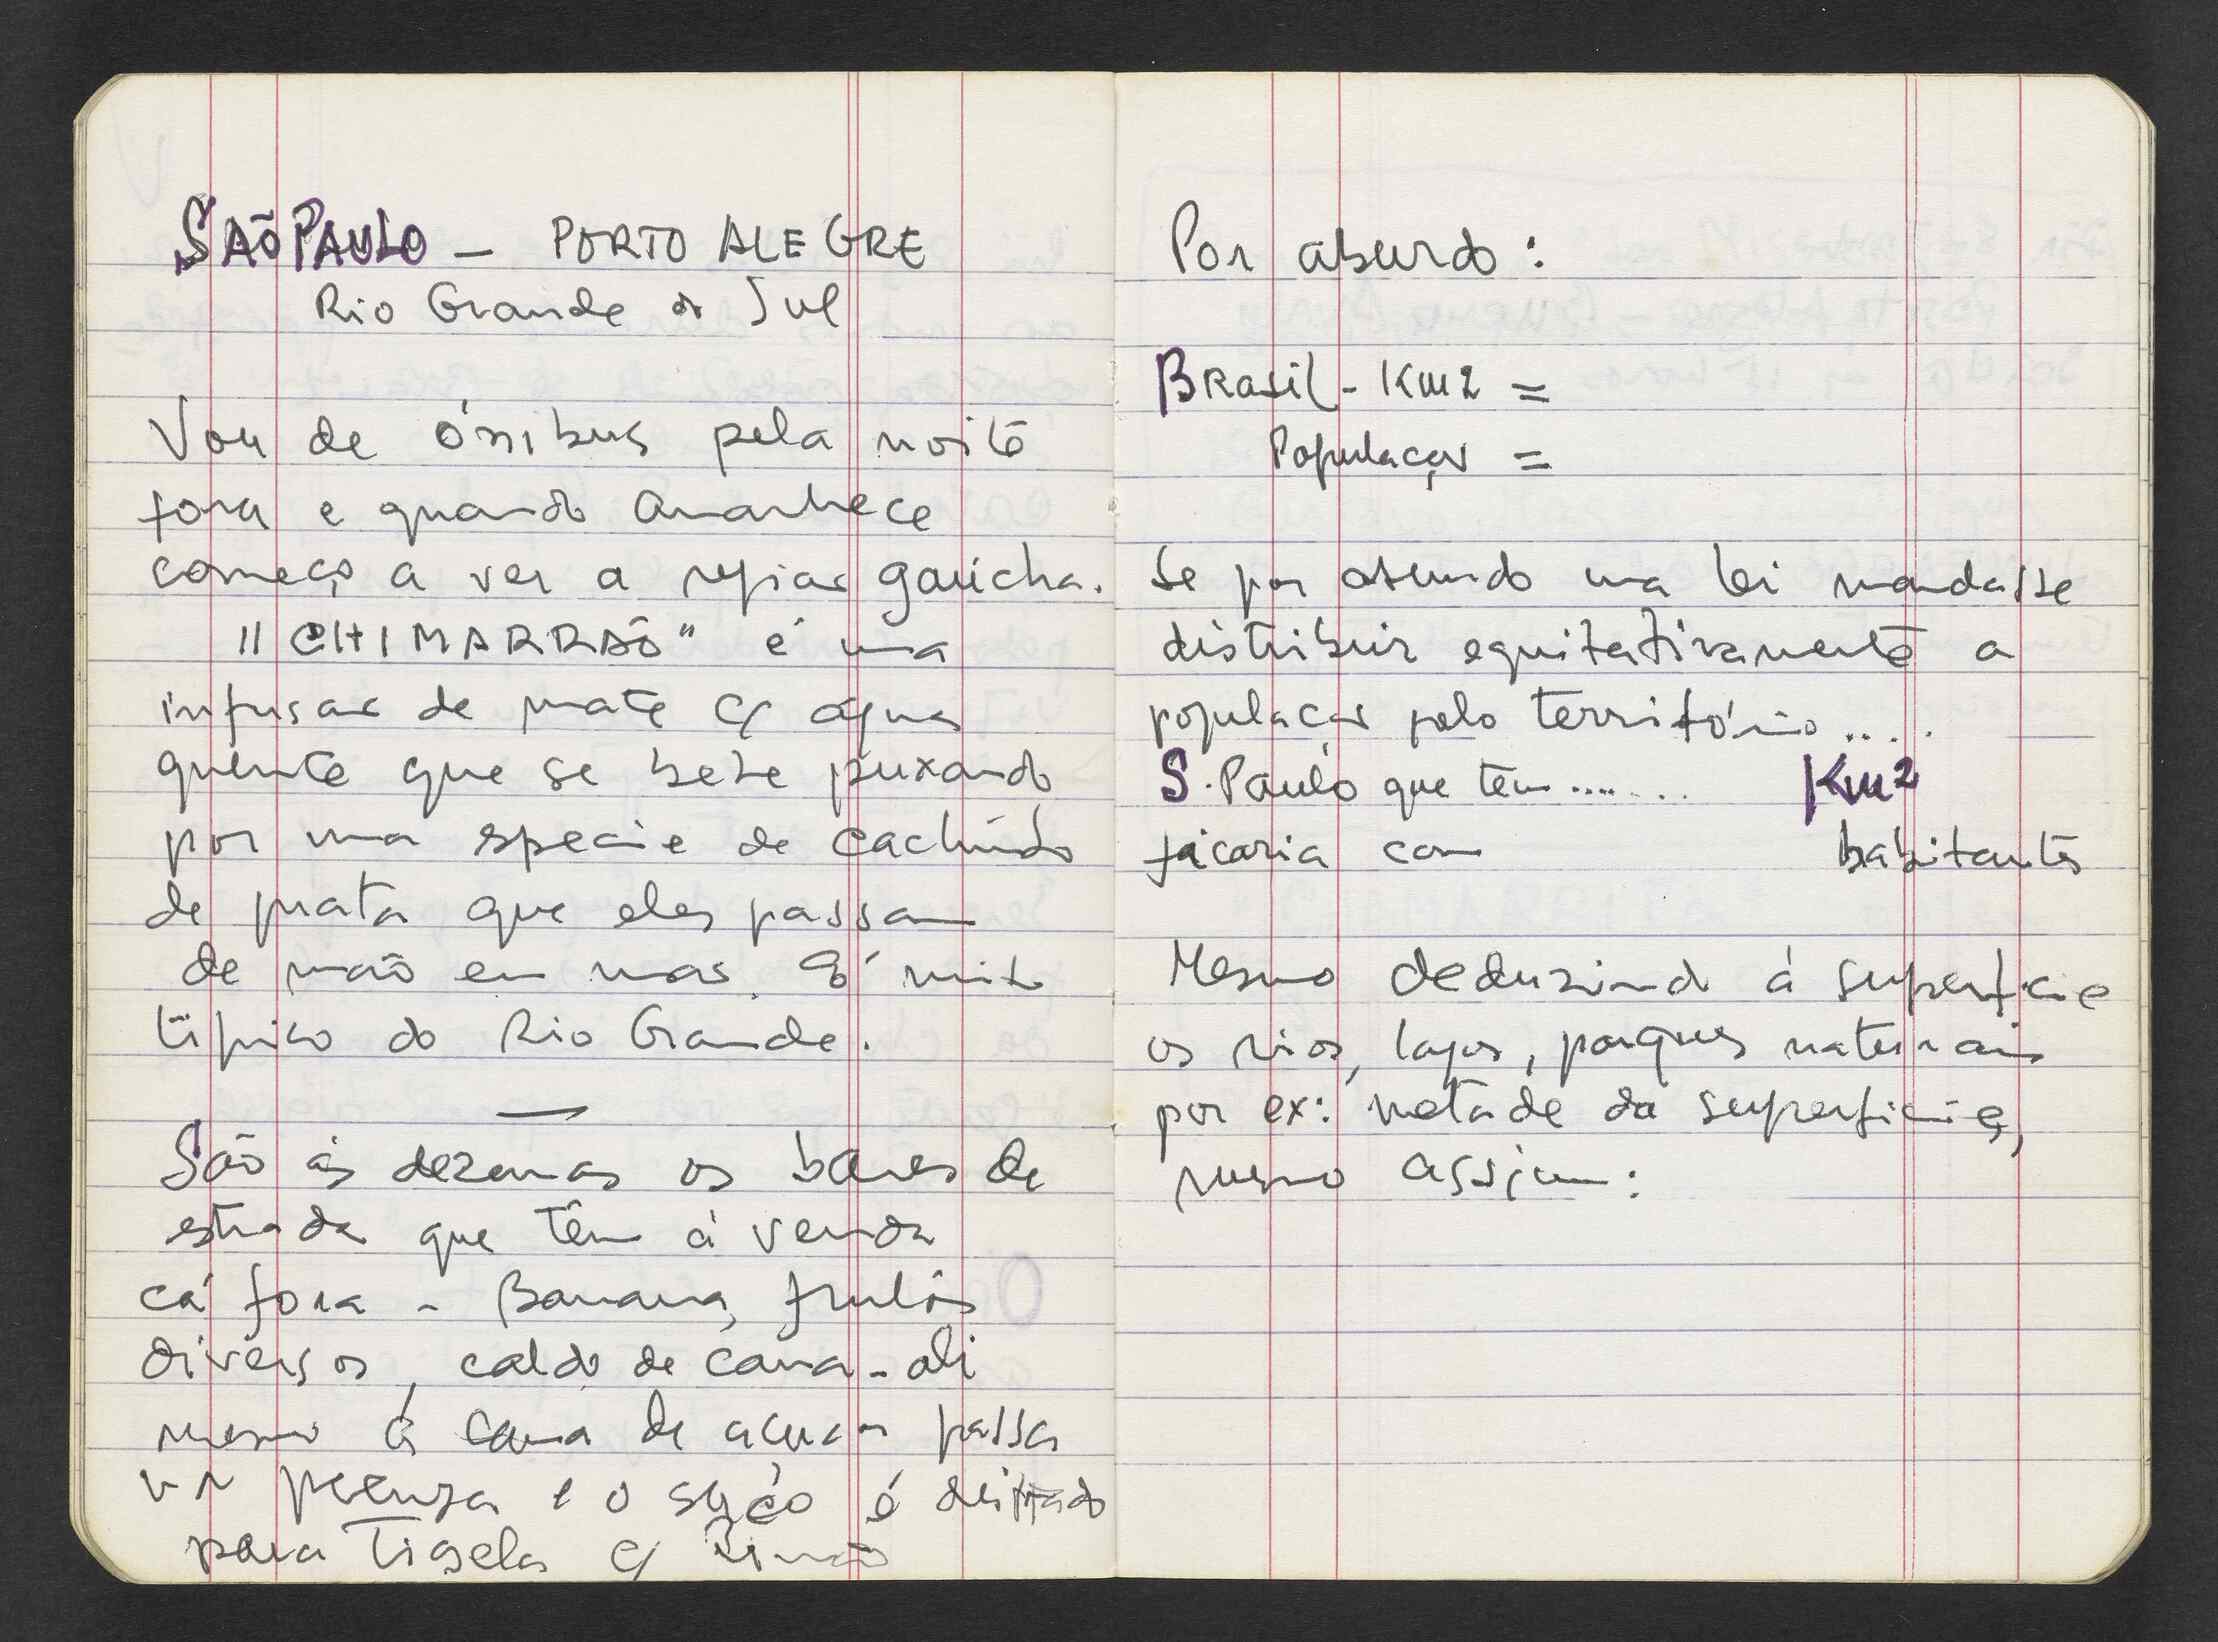 SÃO PAULO - PORTO ALEGRE
Rio Grande do Sul
Vou de ônibus pela noite
fora e quando amanhece
começo a ver a região gaúcha.
"CHIMARRÃO" é uma
infusão de mate c/ água
quente que se bebe puxando
por uma especie de cachimbo
de prata que eles passam
de mão em mão. É muito
típico do Rio Grande.
São às dezenas os bares de
estrada que têm à venda
cá fora - Banana, frutos
diversos, caldo de cana - ali
mesmo a cana de açucar passa
na prensa e o suco é deitado
para tigelas c/ limão
Por absurdo:
Brasil - Km2 =
População =
Se por absurdo uma lei mandasse
distribuir equitativamente a
população pelo território.....
S. Paulo que tem....... Km2
ficaria com habitantes
Mesmo deduzindo à superficie
os rios, lagos, parques naturais
por ex: metade da superficie,
mesmo assim: